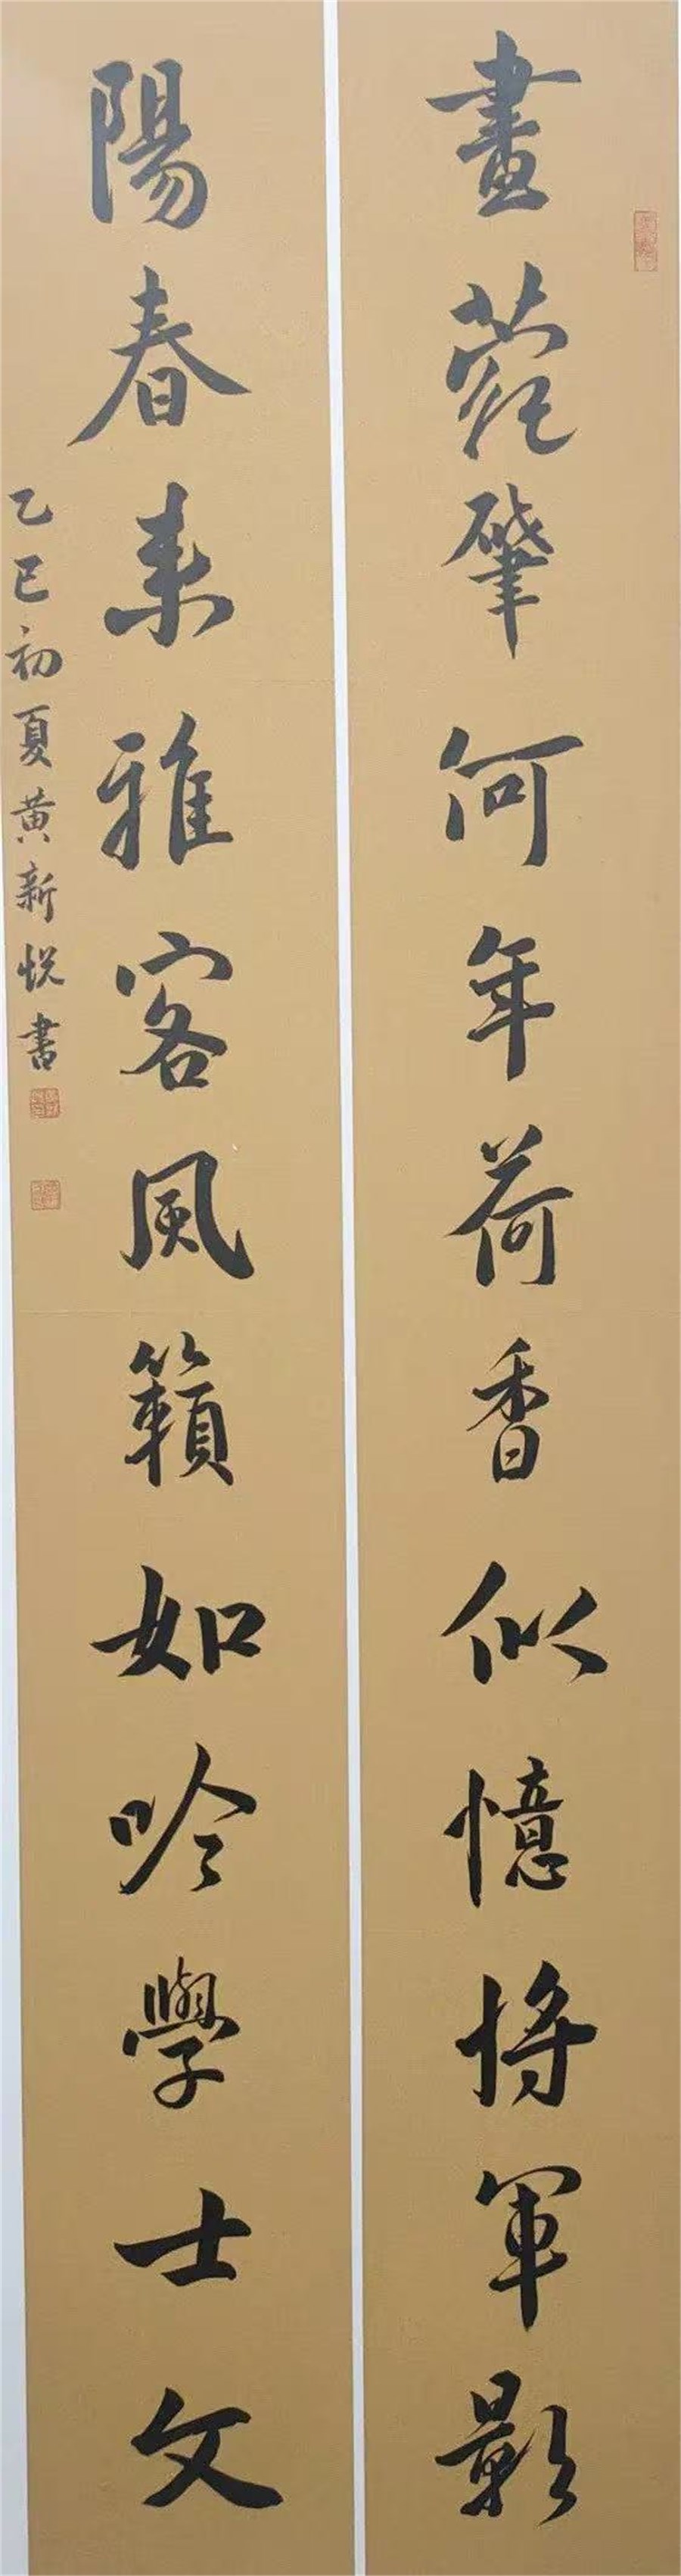 畫肇何年荷香似憶將軍影
陽春來雅客風籟如吟學士文
乙巳初夏黄新悦書